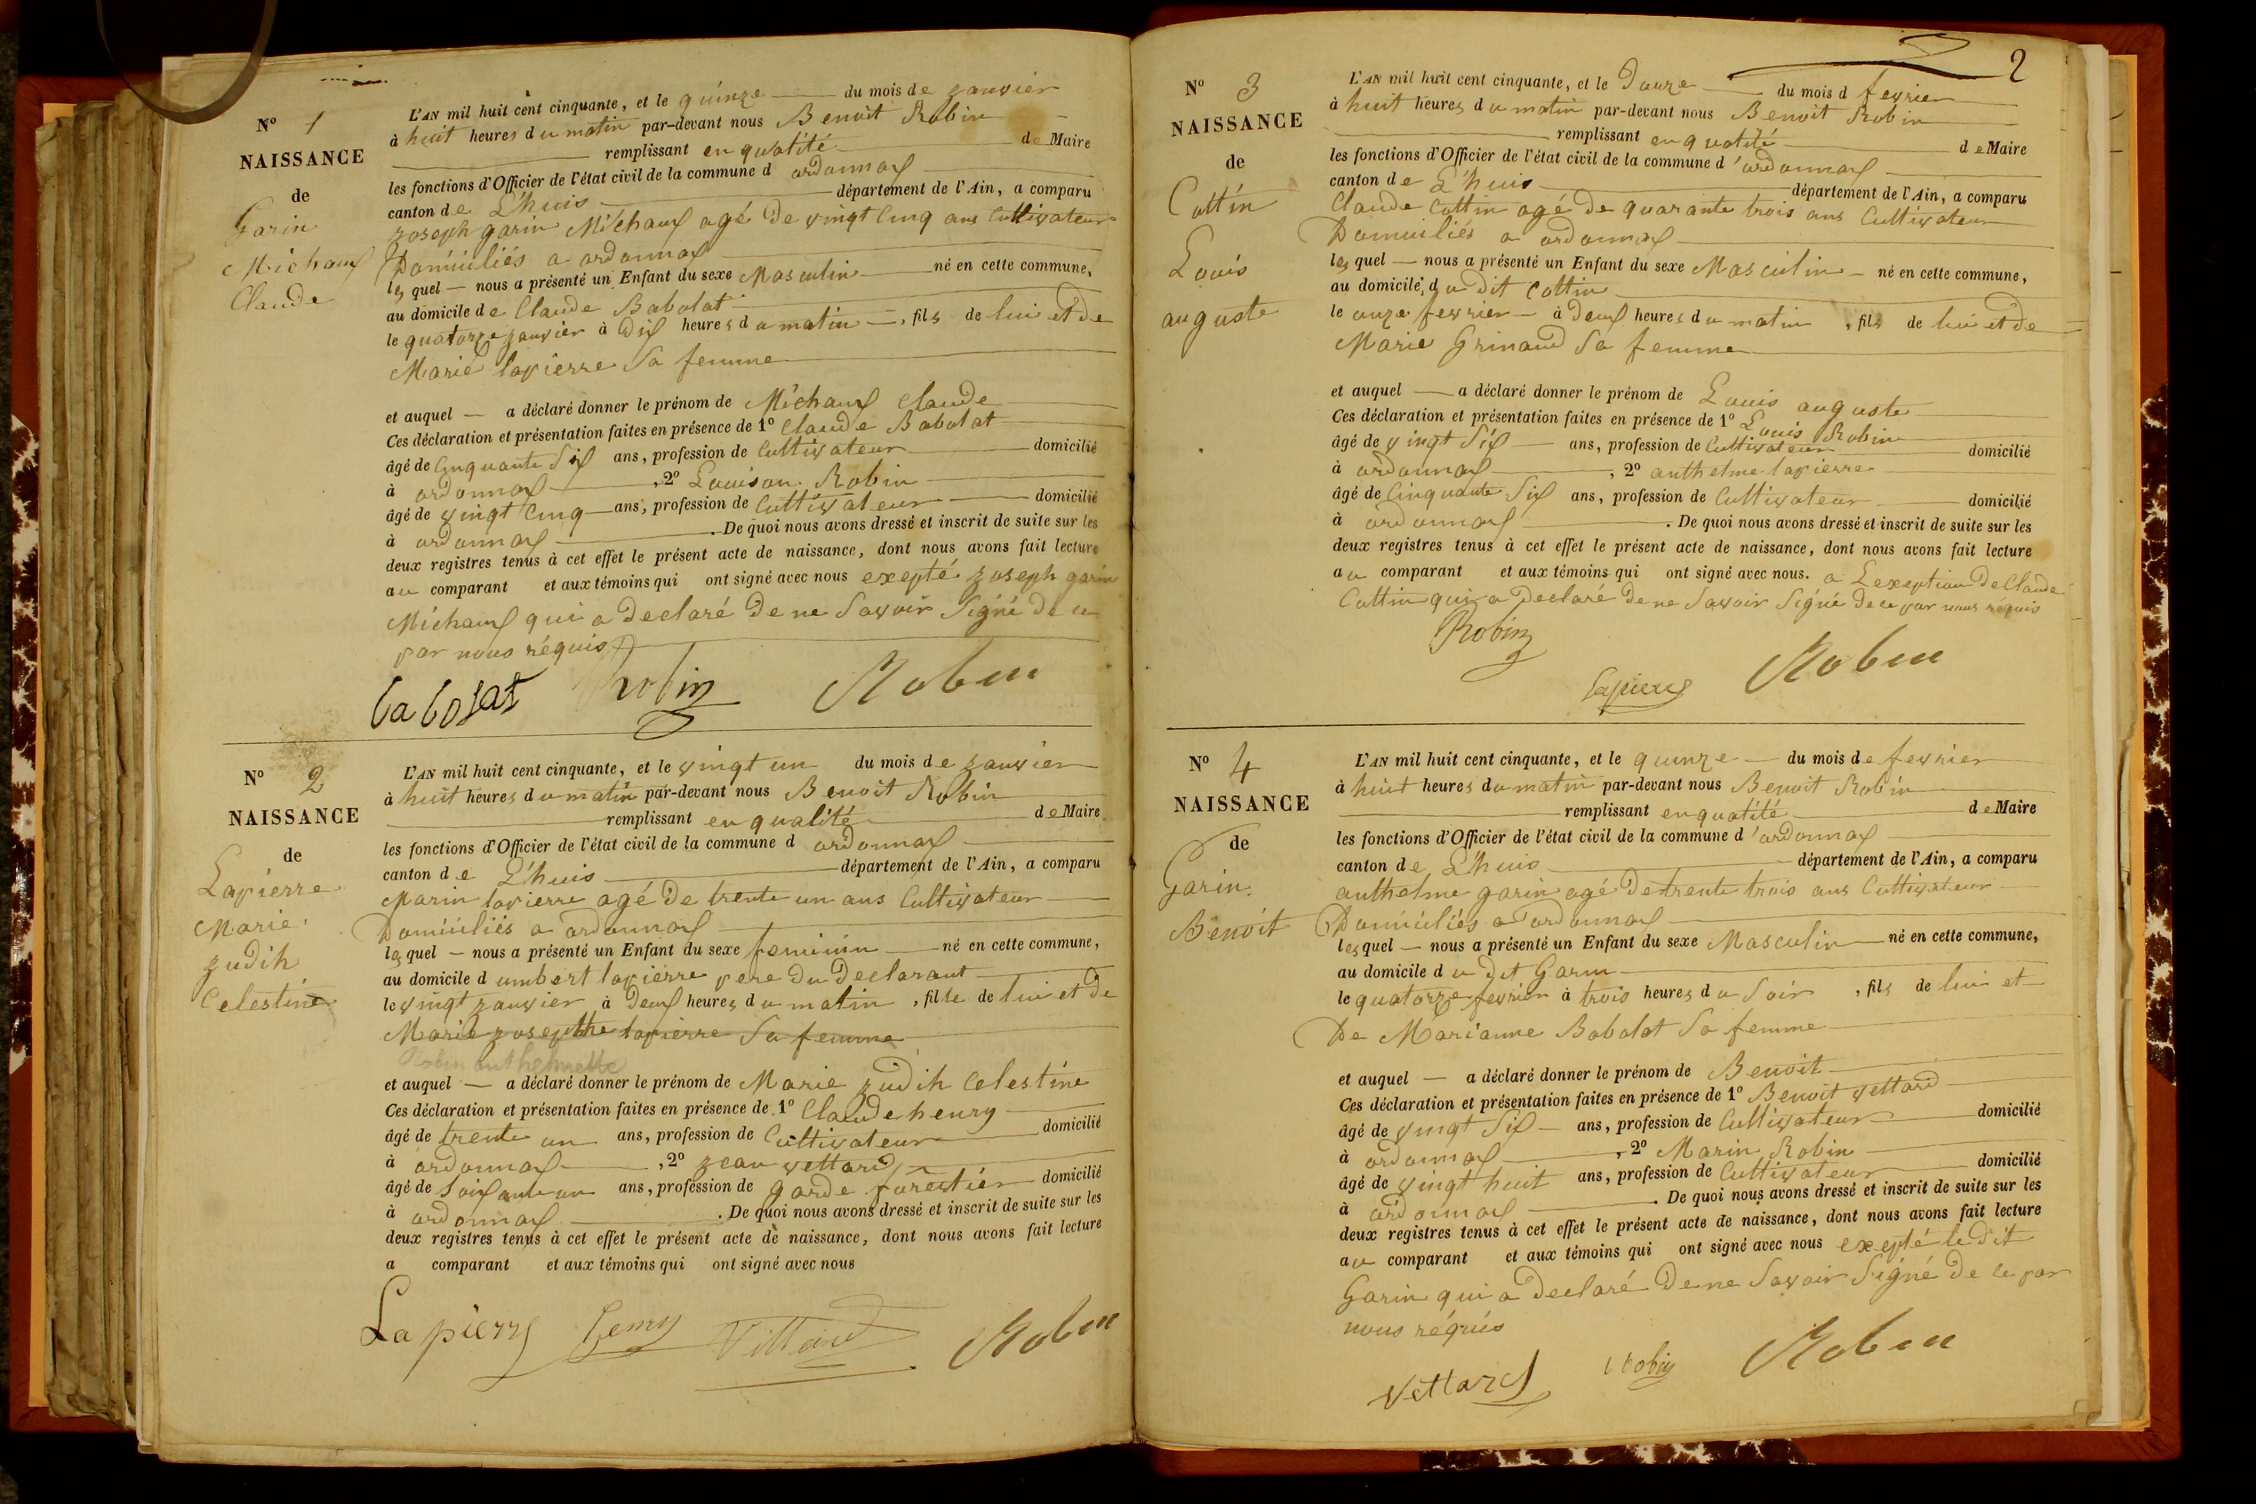 N° 1
NAISSANCE
de
Garin
Michaux
Claude
L'AN mil huit cent cinquante, et le quinze du mois de janvier
à huit heures du matin par-devant nous Benoit Robin
remplissant en qualité de Maire
les fonctions d'Officier de l'état civil de la commune d ordonnax
canton de L'huis département de l'Ain, a comparu
joseph garin Michaux agé de vingt Cinq ans Cultivateur
Domiciliés a ordonnax
lequel nous a présenté un Enfant du sexe Masculin né en cette commune,
au domicile de Claude Babolat
le quatorze janvier à Dix heures du matin, fils de lui et de
Marie lapierre Sa femme
et auquel a déclaré donner le prénom de Michaux Claude
Ces déclaration et présentation faites en présence de 1° Claude Babolat
âgé de Cinquante Six ans, profession de Cultivateur domicilié
à ordonnax, 2° Louison Robin
âgé de vingt Cinq ans, profession de Cultivateur domicilié
à ordonnax. De quoi nous avons dressé et inscrit de suite sur les
deux registres tenus à cet effet le présent acte de naissance, dont nous avons fait lecture
au comparant et aux témoins qui ont signé avec nous exepté joseph garin
Michaux qui a declaré de ne Savoir Signé de ce
par nous réquis
babolat Robin Robin
N° 2
NAISSANCE
de
Lapierre
Marie
judih
Celestine
L'AN mil huit cent cinquante, et le vingt un du mois de janvier
à huit heures du matin par-devant nous Benoit Robin
remplissant en qualité de Maire
les fonctions d'Officier de l'état civil de la commune d ordonnax
canton de L'huis département de l'Ain, a comparu
Marin lapierre agé de trente un ans Cultivateur
Domiciliés a ordonnax
lequel nous a présenté un Enfant du sexe feminin né en cette commune,
au domicile d umbert lapierre pere du Declarant
le vingt janvier à Deux heures du matin, fille de lui et de
Marie josepthe lapierre Sa femme
et auquel a déclaré donner le prénom de Marie judih Celestine
Ces déclaration et présentation faites en présence de 1° Claude henry
âgé de trente un ans, profession de Cultivateur domicilié
à ordonnax, 2° jean vettard
âgé de Soixante un ans, profession de garde forestier domicilié
à ordonnax. De quoi nous avons dressé et inscrit de suite sur les
deux registres tenus à cet effet le présent acte de naissance, dont nous avons fait lecture
a comparant et aux témoins qui ont signé avec nous
Lapierre henry Vettard Robin
2
N° 3
NAISSANCE
de
Cottin
Louis
auguste
L'AN mil huit cent cinquante, et le Douze du mois d fevrier
à huit heures du matin par-devant nous Benoit Robin
remplissant en qualité de Maire
les fonctions d'Officier de l'état civil de la commune d'ordonnax
canton de L'huis département de l'Ain, a comparu
Claude Cottin agé de quarante trois ans Cultivateur
Domiciliés a ordonnax
lequel nous a présenté un Enfant du sexe Masculin né en cette commune,
au domicile du dit Cottin
le onze fevrier à Deux heures du matin, fils de lui et de
Marie Grinand Sa femme
et auquel a déclaré donner le prénom de Louis auguste
Ces déclaration et présentation faites en présence de 1° Louis Robin
âgé de vingt Six ans, profession de Cultivateur domicilié
à ordonnax, 2° anthelme lapierre
âgé de Cinquante Six ans, profession de Cultivateur domicilié
à ordonnax. De quoi nous avons dressé et inscrit de suite sur les
deux registres tenus à cet effet le présent acte de naissance, dont nous avons fait lecture
au comparant et aux témoins qui ont signé avec nous. a Lexeption de Claude
Cottin qui a declaré de ne Savoir Signé de ce par nous requis
Robin
lapierre Robin
N° 4
NAISSANCE
de
Garin
Benoit
L'AN mil huit cent cinquante, et le quinze du mois de fevrier
à huit heures du matin par-devant nous Benoit Robin
remplissant en qualité de Maire
les fonctions d'Officier de l'état civil de la commune d'ordonnax
canton de L'huis département de l'Ain, a comparu
anthelme garin agé de trente trois ans Cultivateur
Domiciliés a ordonnax
lequel nous a présenté un Enfant du sexe Masculin né en cette commune,
au domicile du dit Garin
le quatorze fevrier à trois heures du Soir, fils de lui et
De Marianne Babolat Sa femme
et auquel a déclaré donner le prénom de Benoit
Ces déclaration et présentation faites en présence de 1° Benoit vettard
âgé de vingt Six ans, profession de Cultivateur domicilié
à ordonnax, 2° Marin Robin
âgé de vingt huit ans, profession de Cultivateur domicilié
à ordonnax. De quoi nous avons dressé et inscrit de suite sur les
deux registres tenus à cet effet le présent acte de naissance, dont nous avons fait lecture
au comparant et aux témoins qui ont signé avec nous exepté le dit
Garin qui a declaré de ne Savoir Signé de ce par
nous réquis
Vettard Robin Robin